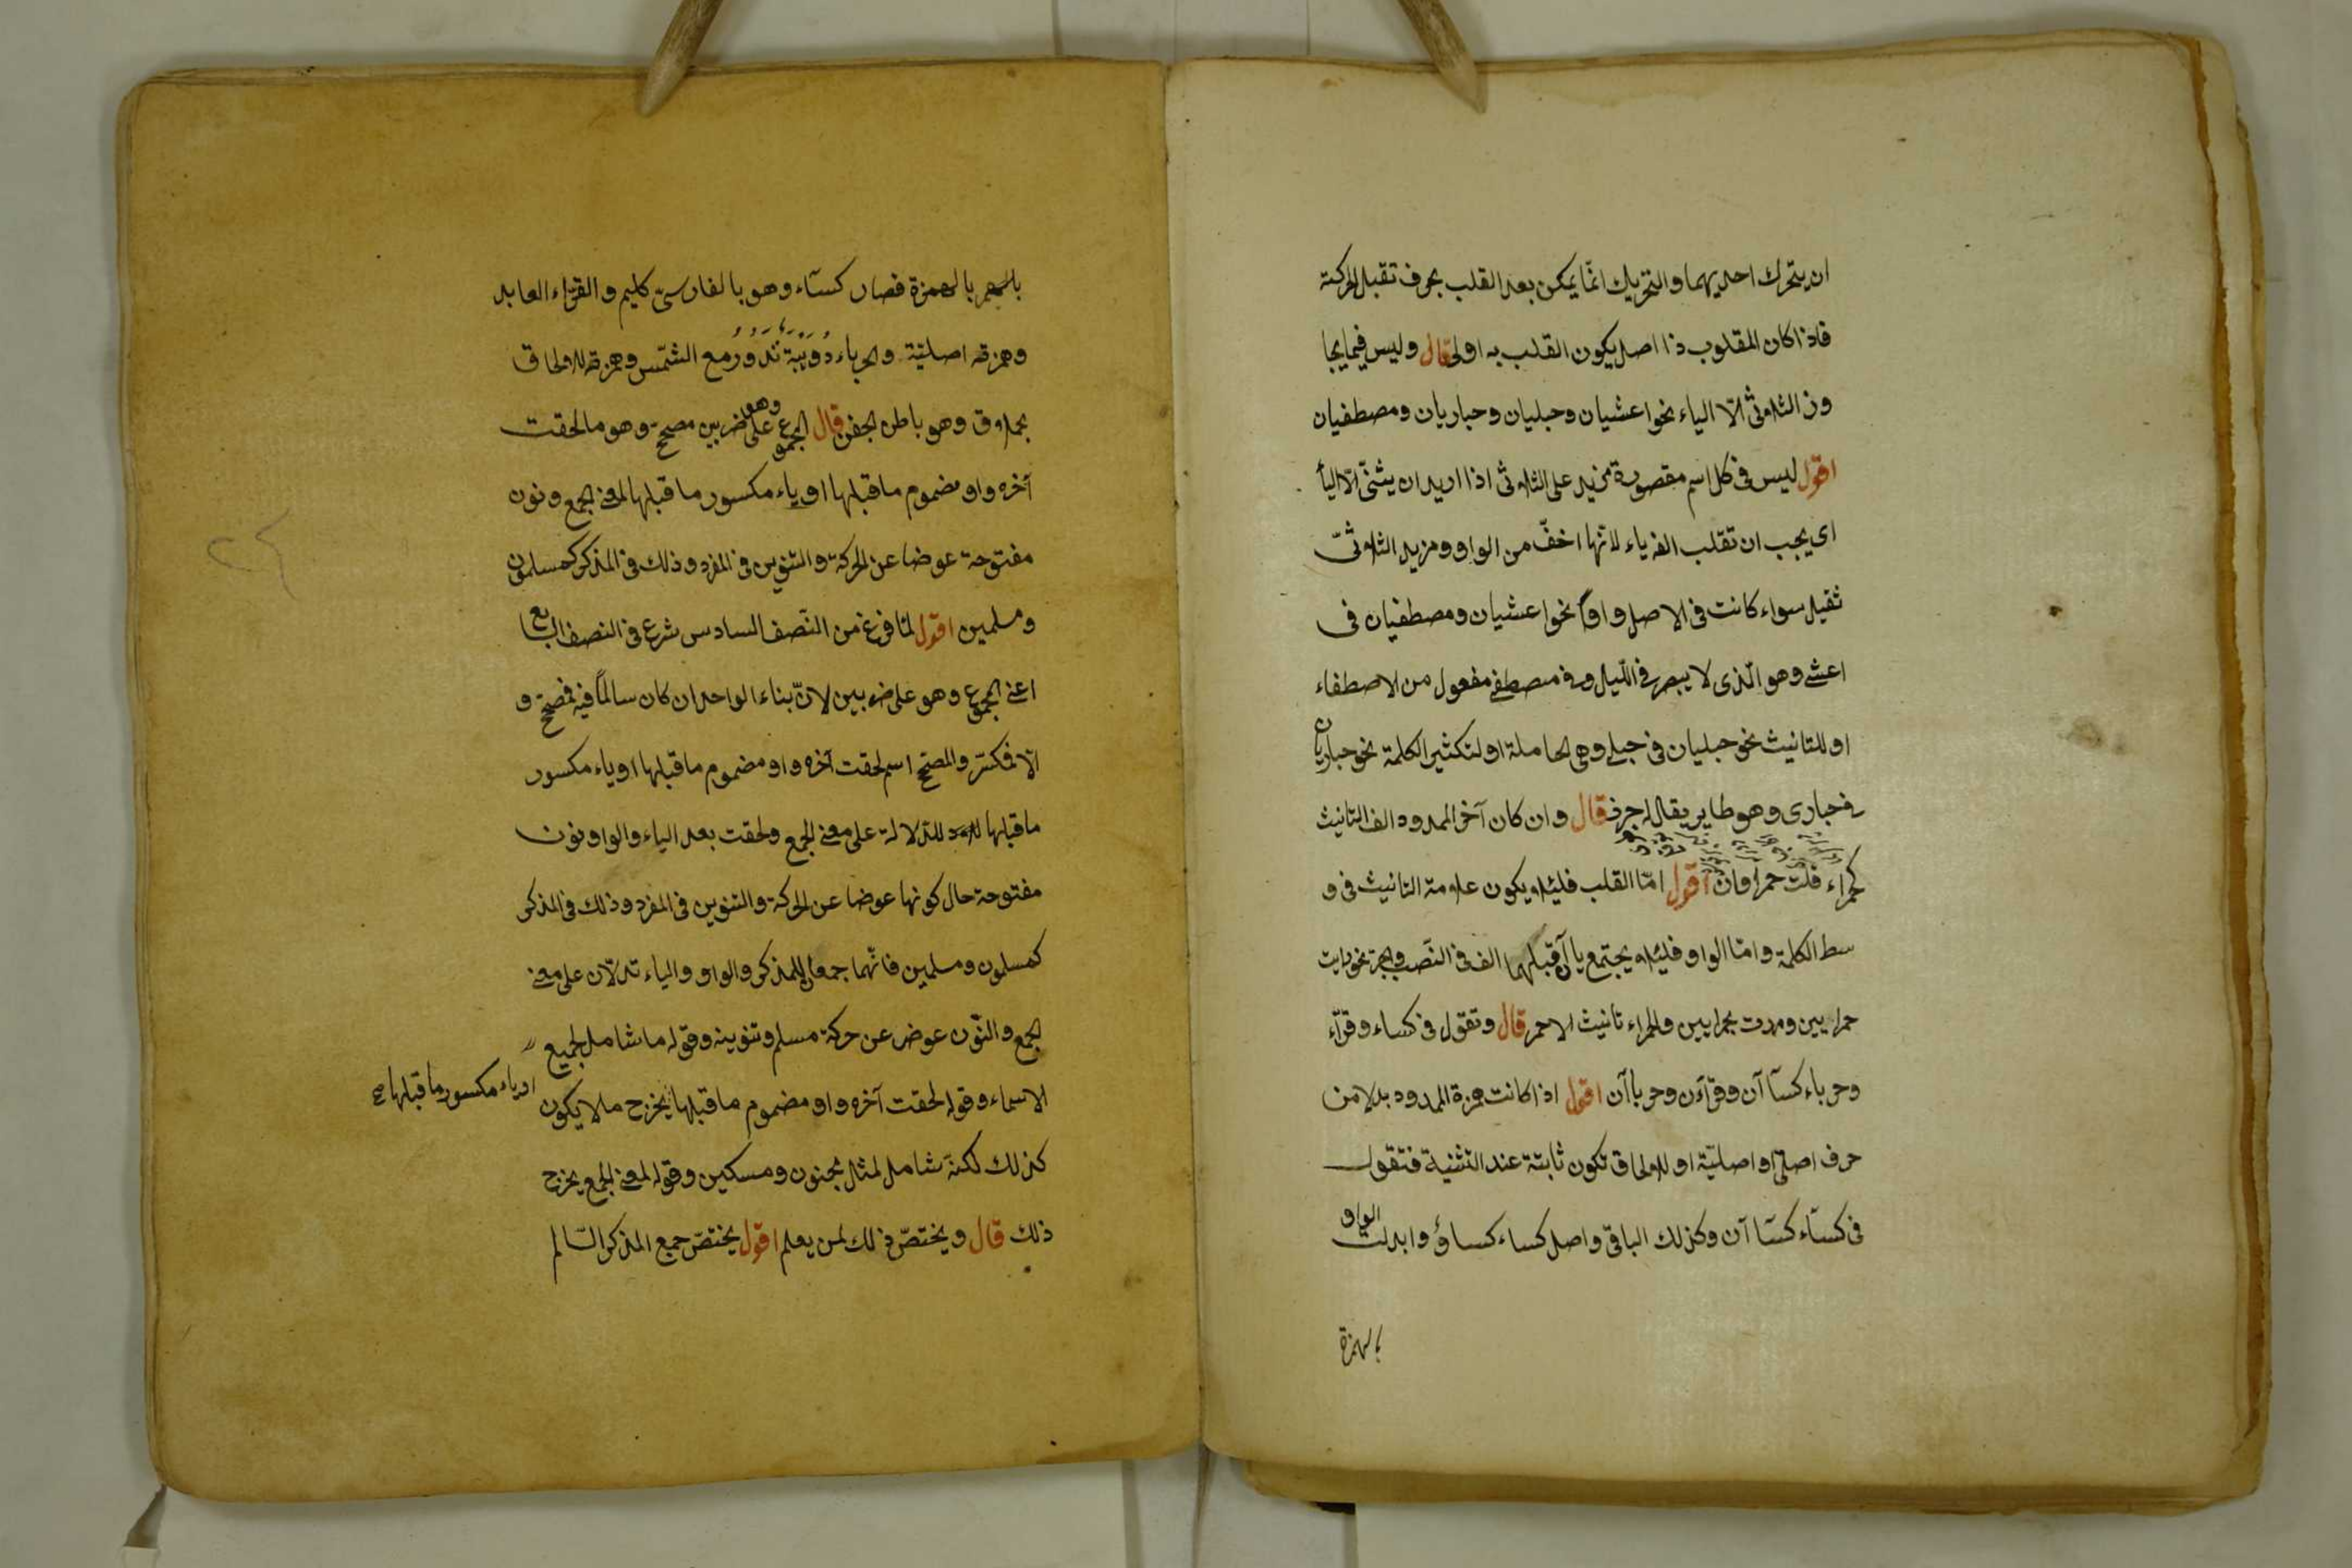 ان يتحرك احديهما والتحريك انّما يمكن بعد القلب بحرف تقبل الحركة
فاذا كان المقلوب ذا اصل يكون القلب به اولى قال وليس فيما يجا
وز الثلاثىّ الّا الياء نحو اعشيان وحبليان وحباريان ومصطفيان
اقول ليس فى كل اسم مقصورة مزيد على الثلاثى اذا اريد ان يثنّى الّا اليأ
اى يجب ان تقلب الفه ياء لانّها اخفّ من الواو ومزيد الثلاثىّ
ثقيل سواء كانت فى الاصل واوا نحو اعشيان ومصطفيان فى
اعشى وهو الّذى لا يبصر فى اللّيل وفى مصطفى مفعول من الاصطفاء
او للتانيث نحو حبليان فى حبلى وهى الحاملة او لتكثير الكلمة نحو حباريان
فى حبارى وهو طاير يقال له جرف قال وان كان آخر الممدود الف التانيث
كحمراء قلت حمراوان اقول امّا القلب فلئلا يكون علامة التانيث فى و
سط الكلمة وامّا الواو فلئلا يجتمع ياآن قبلهما الف فى النّصب والجرّ نحو رايت
حمرايين ومررت بحمرايين والحمراء تانيث الاحمر قال وتقول فى كساء وقرّاء
وحرباء كسآ آن وقرّاءن وحرباآن اقول اذا كانت همزة الممدود بدلا من
حرف اصلى او اصليّة او للالحاق تكون ثابتة عند التثنية فتقول
فى كسآء كسآ آن وكذلك الباقى واصل كساء كساؤ وابدلت الواو
بالهمزة
بالهمزة فصار كسآء وهو بالفارسىّ كليم والقرّاء العابد
وهمزته اصليّة والحرباء دُوَيْبَة تَدُورُ مع الشّمس وهمزته للالحاق
بحملاق وهو باطن الجفن قال المجموع وهو على ضربين مصحح وهو ما لحقت
آخره واو مضموم ما قبلها او ياء مكسور ما قبلها لمعنى الجمع ونون
مفتوحة عوضا عن الحركة والتنوين فى المفرد وذلك فى المذكر كمسلمون
ومسلمين اقول لمّا فرغ من النّصف السادس شرع فى النصف السابع
اعنى المجموع وهو على ضربين لانّ بناء الواحد ان كان سالماً فيه فمصحّح و
الّا فمكسّر والمصحّح اسم لحقت آخره واو مضموم ما قبلها او ياء مكسور
ما قبلها للدّلالة على معنى الجمع ولحقت بعد الياء والواو نون
مفتوحة حال كونها عوضا عن الحركة والتنوين فى المفرد وذلك فى المذكر
كمسلمون ومسلمين فانّهما جمعان للمذكر والواو والياء تدلّان على معنى
الجمع والنّون عوض عن حركة مسلم وتنوينه وقوله ما شامل لجميع
الاسماء وقوله لحقت آخره واو مضموم ما قبلها يخرج ما لا يكون
او ياء مكسور ما قبلها صح
كذلك لكنّه شامل لمثل مجنون ومسكين وقوله لمعنى الجمع يخرج
ذلك قال ويختصّ ذلك لمن يعلم اقول يختصّ جمع المذكر السّالم